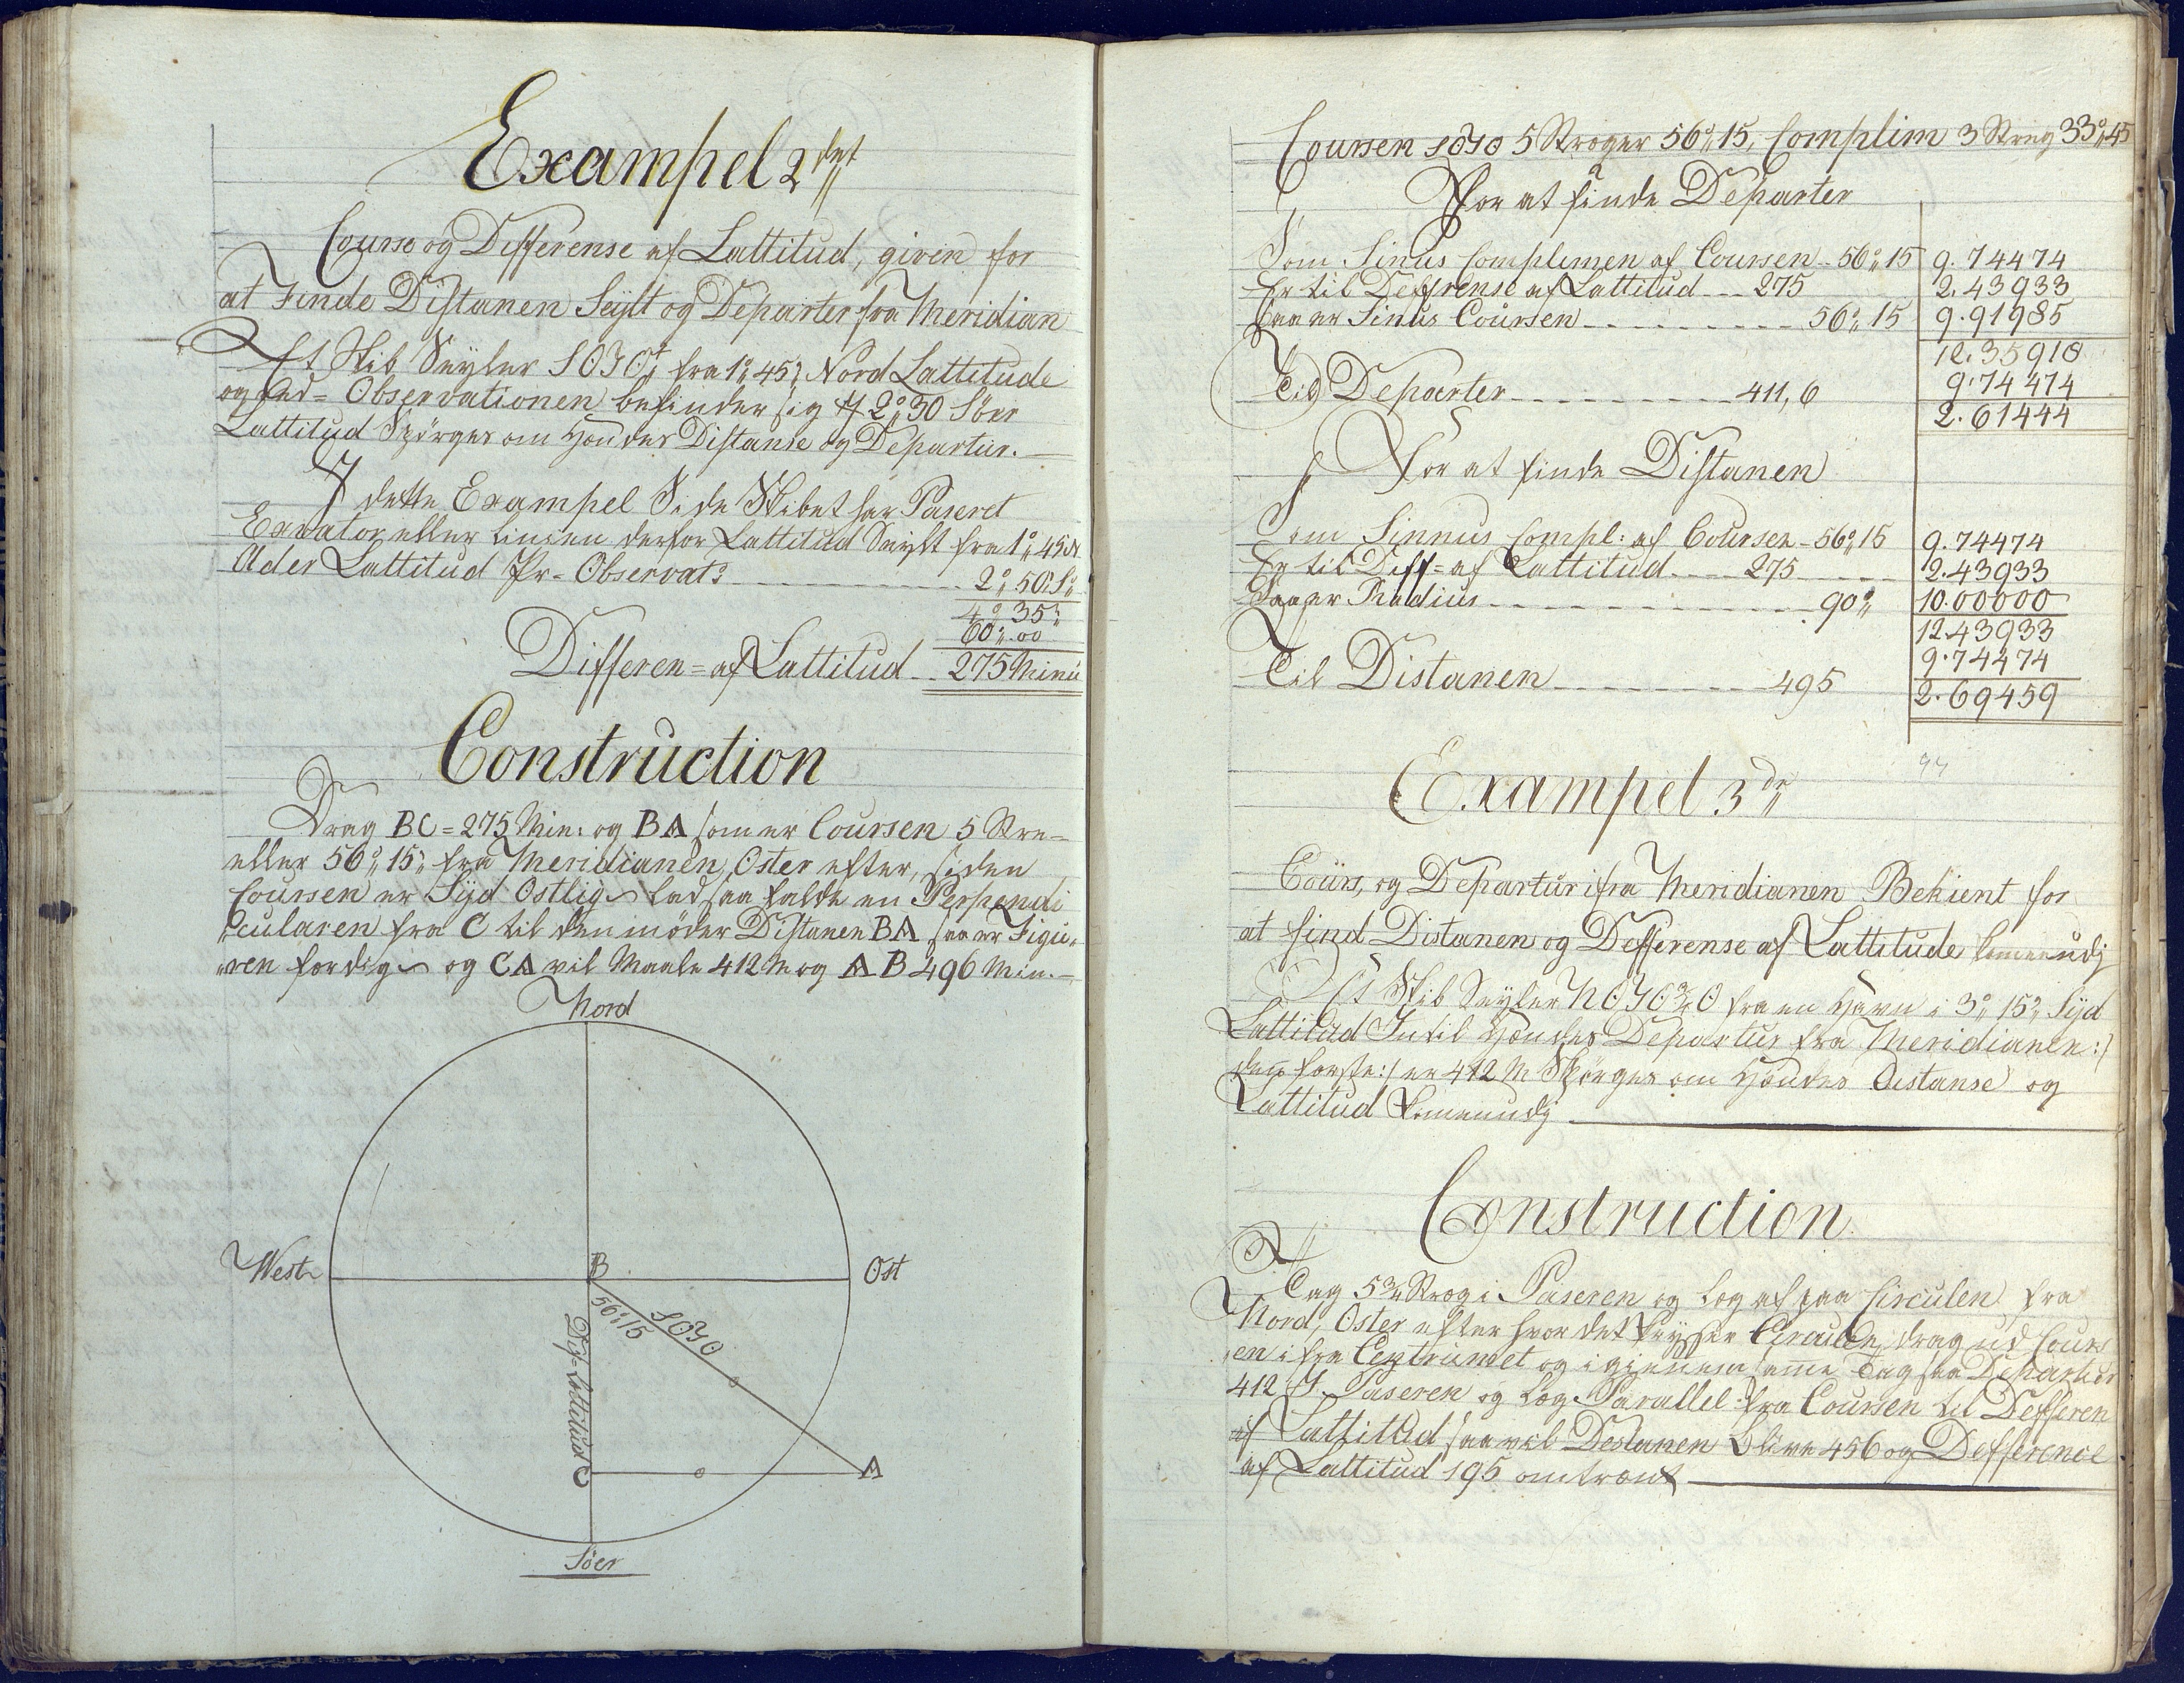 Exampel 2det
Course og Differense af Lattitud, given for
at Finde Distanen Seylt og Departer fra Meridian
Et Skib Seyler SOJO fra 1° 45' Nord Lattitude
og ved= Observationen befinder sig 2° 30 Söer
Lattitud Spörges om hendes Distanse og Departur.
I dette Exampel Side Skibet har Paseret
Eqvator eller Linien derfor Lattitud Seylt fra 1° 45 N
Ader Lattitud Pr= Observat: 2° 50' S
4° 35'
60' 00
Differen= af Lattitud 275 Minu
Construction
Drag BC = 275 Min: og BA som er Coursen 5 Stre=
eller 56° 15' fra Meridianen Oster efter, siden
Coursen er Syd Ostlig lad saa falde en Perpendi
cularen fra C til den möder Distanen BA saa er Figu
ren ferdig og CA vil Maale 412 M og AB 496 Min.
Nord
West
B
Ost
56° 15
SOJO
Dif= Lattitud
C
A
Söer
Coursen SOJO 5 Streger 56° 15, Complim 3 Streg 33° 45
For at finde Departer
Som Sinus Complemen af Coursen 56° 15 9.74474
Er til Defferense af Lattitud 275 2.43933
Saa er Sinus Coursen 56° 15 9.91985
12.35918
9.74474
Til Departer 411,6 2.61444
For at finde Distanen
Som Sinnus Compl: af Coursen 56° 15 9.74474
Er til Diff= af Lattitud 275 2.43933
Saa er Radius 90° 10.00000
12.43933
9.74474
Til Distanen 495 2.69459
Exampel 3de
Cours, og Departur ifra Meridianen Bekient for
at find Distanen og Defferense af Lattitude
Et Skib Seyler NOJO¾O fra en Havn i 3° 15' Syd
Lattitud Intil hendes Departur fra Meridianen :/
den forste :/ er 412 M Spörges om hendes Distanse og
Lattitud
Construction
Tag 5¾ Streg i Paseren og Log af paa Circulen fra
Nord, Oster efter hvor det Circulen, drag ud Cours
en ifra Centrumet og igiennem samme Tag saa Departur
412 I Paseren og Log Parallel fra Coursen til Defferen
af Lattitud saa vil Destanen blive 456 og Defference
af Lattitud 195 omtrent